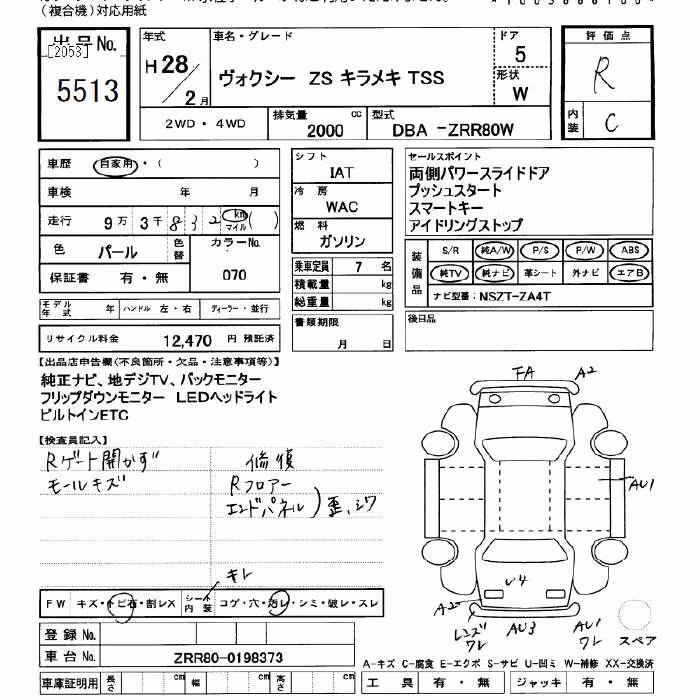 （複合機）対応用紙
出品No.
[2053]
5513
年式
H28/2月
車名・グレード
ヴォクシー ZS キラメキ TSS
ドア
5
形状
W
評価点
R
内装
C
2WD・4WD
排気量
2000
cc
型式
DBA -ZRR80W
車歴 自家用・（ ）
車検 年 月
走行 9万 3千 832 km マイル ( )
色 パール 色替 カラーNo. 070
保証書 有・無
シフト
IAT
冷房
WAC
燃料
ガソリン
乗車定員 7 名
積載量 kg
総重量 kg
書類期限
月 日
セールスポイント
両側パワースライドドア
プッシュスタート
スマートキー
アイドリングストップ
装備品
S/R 純A/W P/S P/W ABS
純TV 純ナビ 革シート 外ナビ エアB
ナビ型番：NSZT-ZA4T
後日品
モデル年式 年 ハンドル 左・右 ディーラー・並行
リサイクル料金 12,470 円 預託済
【出品店申告欄（不良箇所・欠品・注意事項等）】
純正ナビ、地デジTV、バックモニター
フリップダウンモニター LEDヘッドライト
ビルトインETC
【検査員記入】
Rゲート開かず
モールキズ
修復
Rフロアー
エンドパネル ) 歪、シワ
FA
A2
AU1
U4
A2
レンズワレ
AU3
AU1
ワレ
スペア
キレ
FW キズ・トビ石・割レX シート内装 コゲ・穴・汚レ・シミ・破レ・スレ
登録No.
車台No. ZRR80-0198373
車庫証明用 長さ cm 幅 cm 高さ cm
A-キズ C-腐食 E-エクボ S-サビ U-凹ミ W-補修 XX-交換済
工具 有・無 ジャッキ 有・無